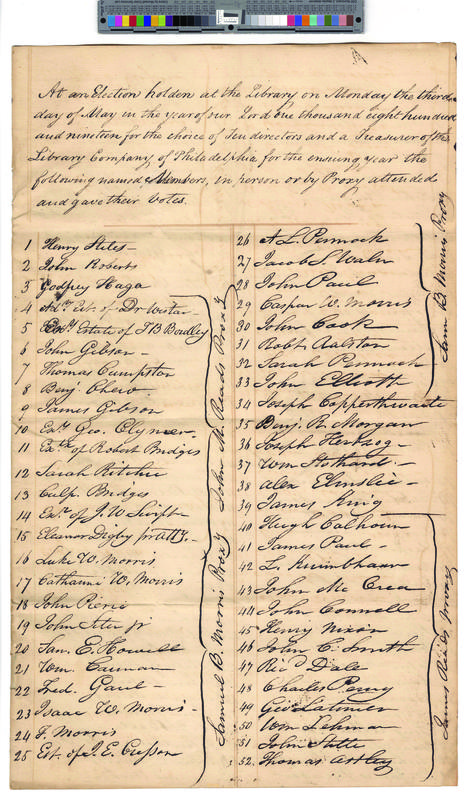 At an Election holden at the Library on Monday the third
day of May in the year of our Lord One thousand eight hundred
and nineteen for the choice of Ten directors and a Treasurer of the
Library Company of Philadelphia, for the ensuing year the
following named Members, in person or by Proxy attended
and gave their Votes.
1 Henry Stiles
2 John Roberts
3 Godfrey Haga
4 Est. of Dr Wistar
5 Estate of J B Bordley
6 John Gibson
7 Thomas Cumpston
8 Benj. Chew
9 James Gibson
10 Exrs Geo. Clymer
11 of Robert Bridges
12 Sarah Ritchie
13 Culp. Bridges
14 Exrs of J. W Swift
15 Eleanor Digby
16 Luke W. Morris
17 Catharine W. Morris
18 John
19 John jr
20 Sam. E. Howell
21 Wm.
22 Fred. Gaul
23 Isaac W. Morris
24 T. Morris
25 Est. of J. E. Cresson
John M. Reads Proxy
Samuel B. Morris Proxy
26 A L. Pennock
27 Jacob S Waln
28 John Paul
29 Caspar W. Morris
30 John Cook
31 Robt Ralston
32 Sarah Pennock
33 John Elliott
34 Joseph Copperthwaite
35 Benj. R. Morgan
36 Joseph Hertzog
37 Wm Stothard
38 Alex Elmslie
39 James King
40 Hugh Calhoun
41 James Paul
42 L. Krumbhaar
43 John Mc Crea
44 John Connell
45 Henry Nixon
46 John C. Smith
47 Ricd Dale
48 Charles Perry
49 Geo Latimer
50 Wm Lehman
51 John
52. Thomas Astley
Sam B Morris Proxy
James proxy